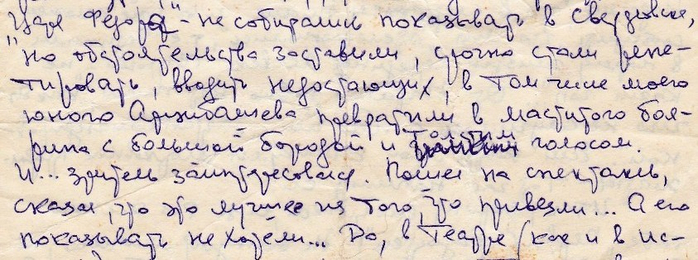 "Царя Федора" - не собирались показывать в Свердловске,
но обстоятельства заставили, срочно стали репе-
тировать, вводить недостающих, в том числе моего
юного Арцибашева превратили в маститого боя-
рина с большой бородой и толстым голосом.
И... зритель заинтересовался. Пошел на спектакль,
сказал, что это лучшее из того, что привезли... А его
показывать не хотели... Да, в Театре (как и в ис-